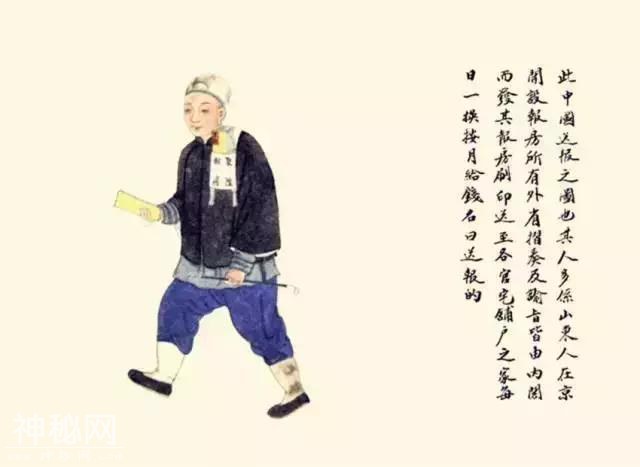 此中國送报之圖也其人多係山東人在京
開設報房所有外省摺奏及諭旨皆由内閣
而發其报房刷印送至各官宅鋪户之家每
日一換按月給錢名曰送報的
神秘网